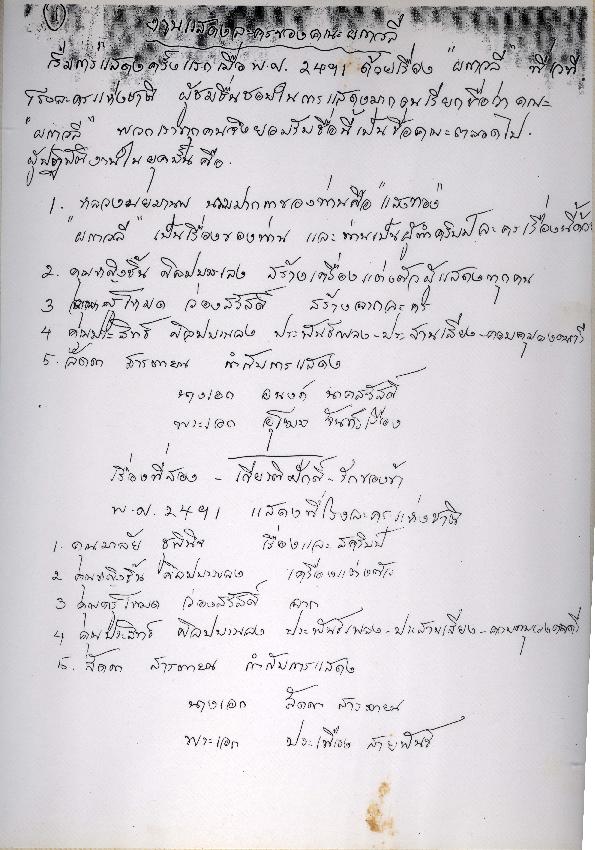 งานแสดงละครของคณะผกาวลี
เริ่มการแสดงครั้งแรกเมื่อ พ.ศ. 2491 ด้วยเรื่อง "ผกาวลี" ที่เวที
โรงละครแห่งชาติ ผู้ชมชื่นชอบในการแสดงมากจนเรียกชื่อว่า คณะ
"ผกาวลี" พวกเราทุกคนจึงยอมรับชื่อนี้เป็นชื่อคณะตลอดไป.
ผู้ปฏิบัติงานในยุคนั้น คือ.
1. หลวง นามปากกาของท่านคือ "แสงทอง"
"ผกาวลี" เป็นเรื่องของท่าน และท่านเป็นผู้ทำสคริปป์ละครเรื่องนี้ด้วย
2. คุณหญิงชิ้น ศิลปบรรเลง สร้างเครื่องแต่งตัวผู้แสดงทุกคน
3 คุณครูโหมด ว่องสวัสดิ์ สร้างฉากละคร
4 คุณประสิทธิ์ ศิลปบรรเลง ประพันธ์เพลง-ประสานเสียง-ควบคุมวงดนตรี
5. ลัดดา สารตายน กำกับการแสดง
นางเอก อนงค์ นาคสวัสดิ์
พระเอก จันทร์เรือง
เรื่องที่สอง - เกียรติศักดิ์-รักของข้า
พ.ศ. 2491 แสดงที่โรงละครแห่งชาติ
1. คุณมาลัย ชูพินิจ เรื่องและสคริปป์
2 คุณหญิงชิ้น ศิลปบรรเลง เครื่องแต่งตัว
3 คุณครูโหมด ว่องสวัสดิ์ ฉาก
4 คุณประสิทธิ์ ศิลปบรรเลง ประพันธ์เพลง-ประสานเสียง-ควบคุมวงดนตรี
5. ลัดดา สารตายน กำกับการแสดง
นางเอก ลัดดา สารตายน
พระเอก ประเทือง